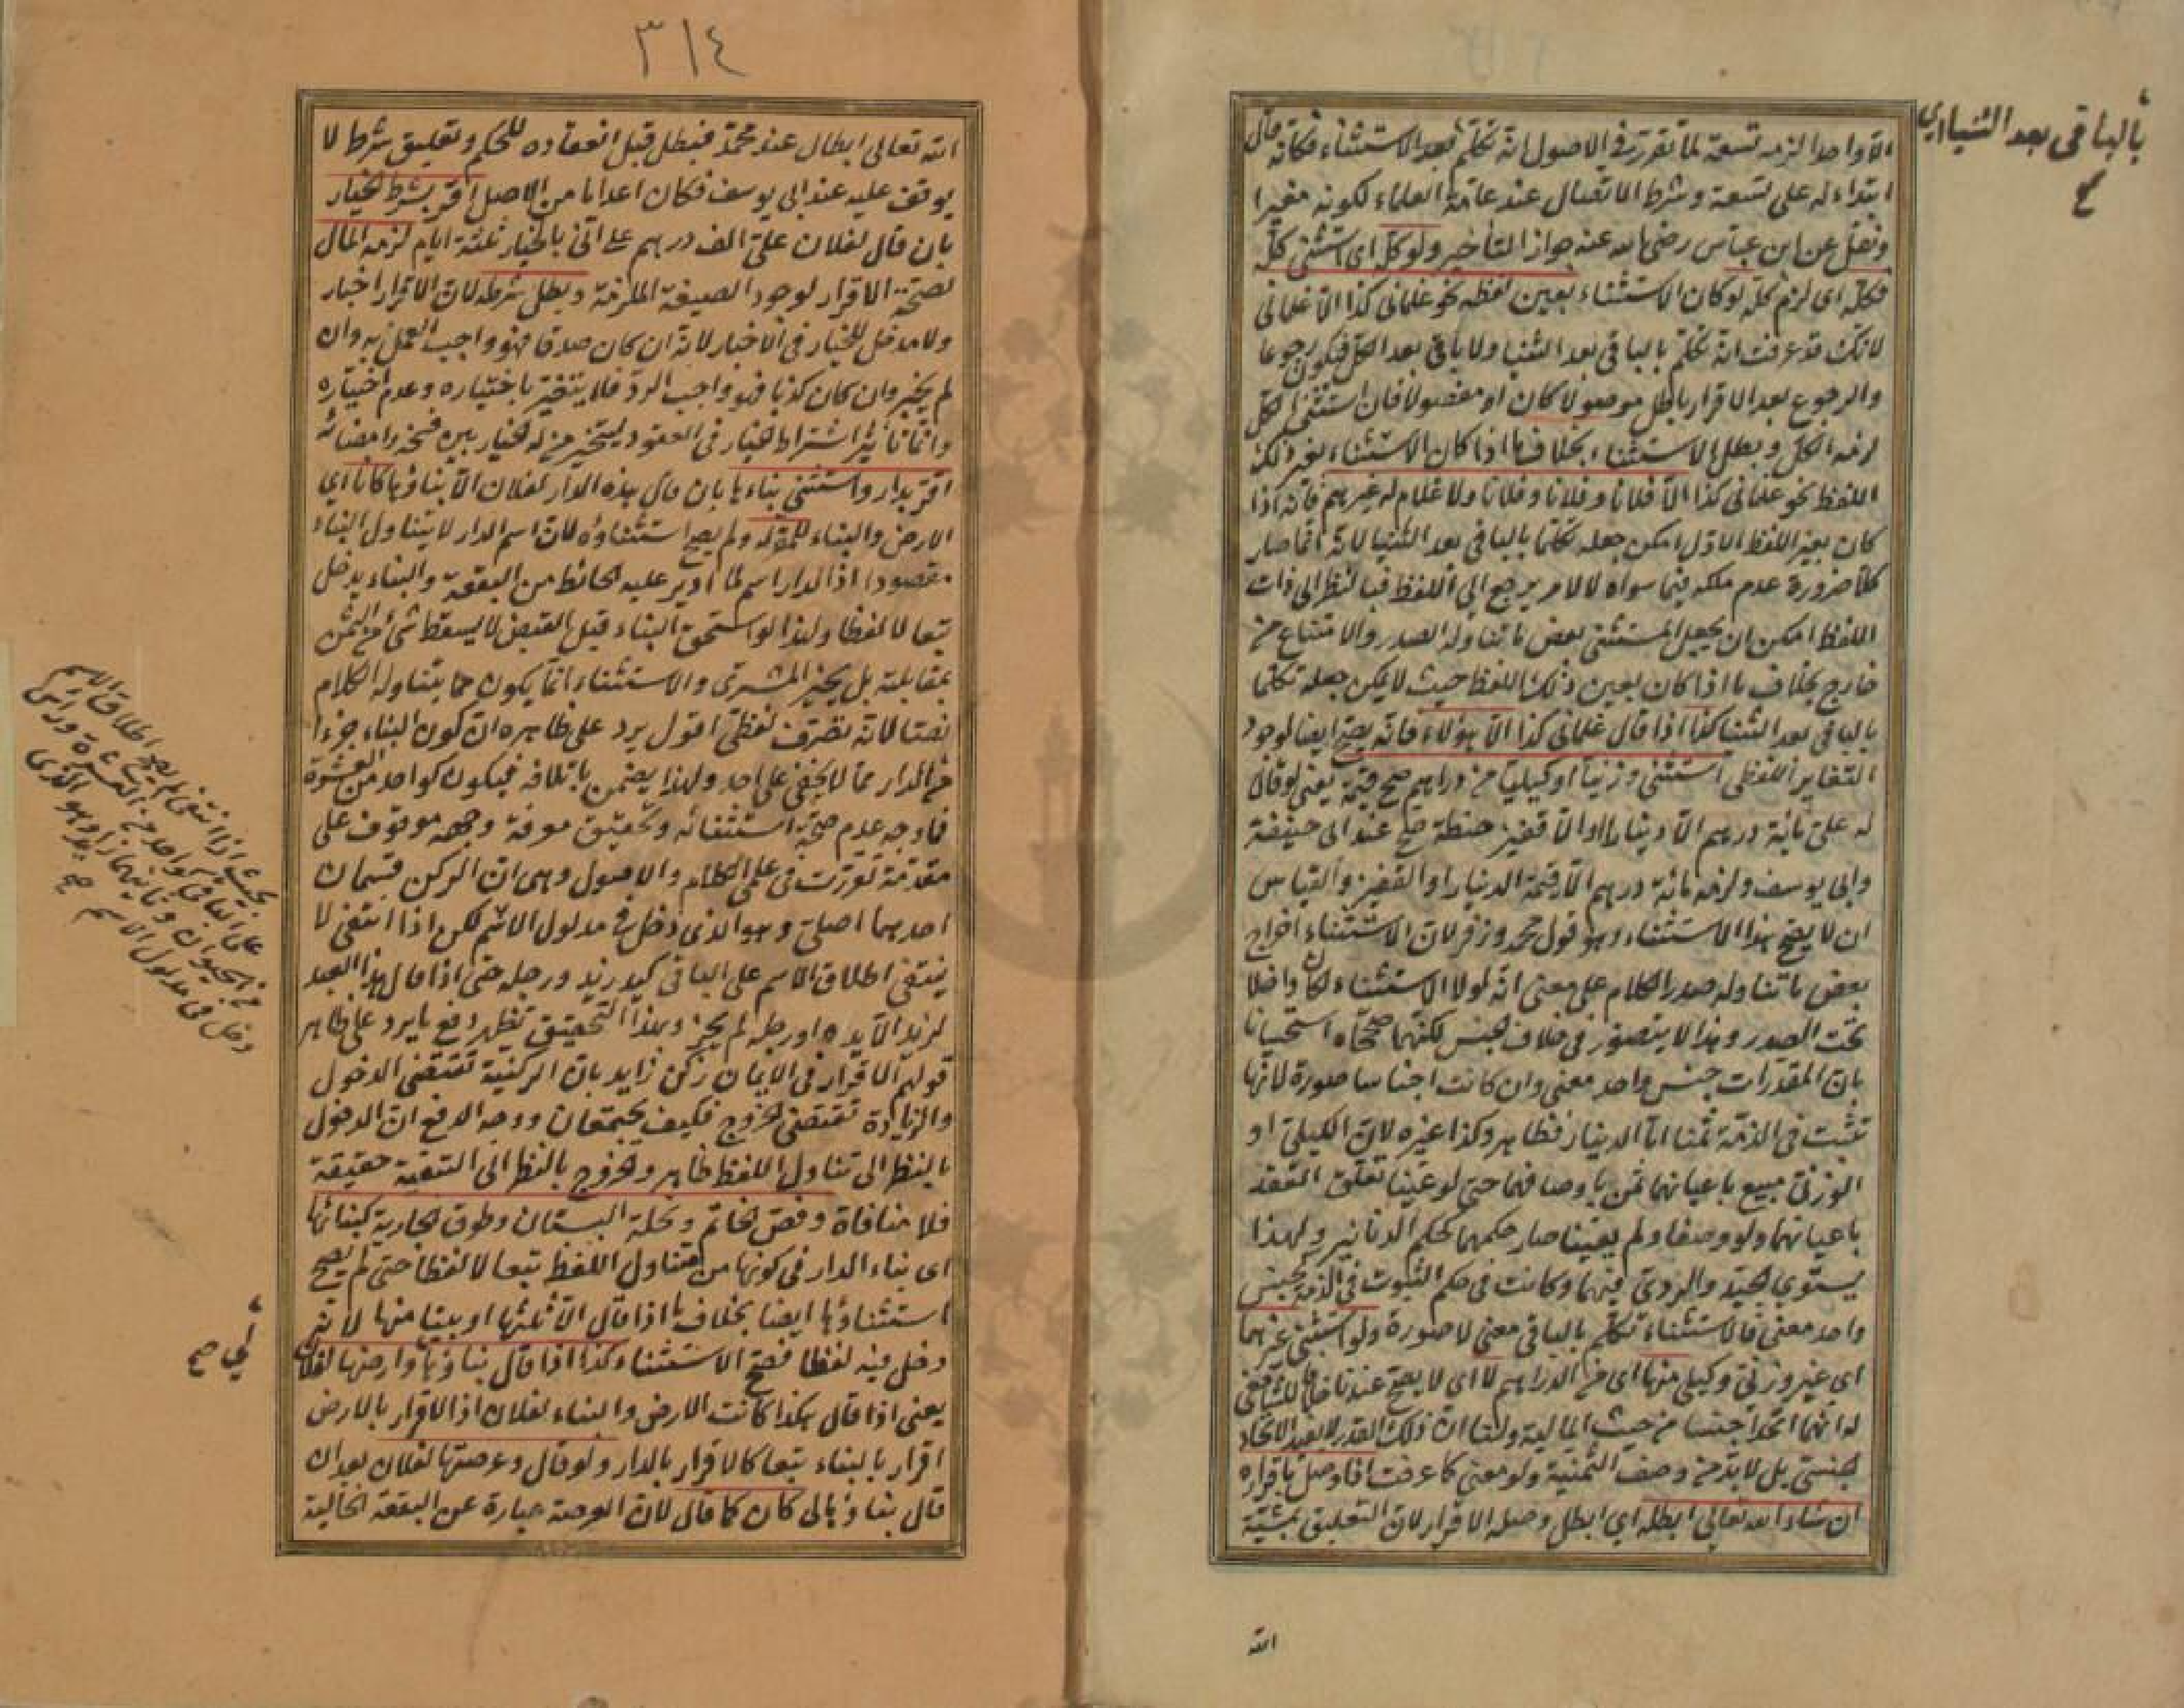 الا واحدا لزمه تسعة لما تقرر في الاصول انه تكلم بعد الاستثناء فكانه قال
بالباقي بعد الثنيا اي
صح
ابتداء له على تسعة وشرط الاتصال عند عامة العلماء لكونه مغيرا
ونقل عن ابن عباس رضي الله عنه جواز التأخير ولو كل اي استثنى كل
فكله اي لزم كله لو كان الاستثناء بعين لفظه نحو غلماني كذا الا غلماني
لانك قد عرفت انه تكلم بالباقي بعد الثنيا ولا باقي بعد الكل فيكون رجوعا
والرجوع بعد الاقرار باطل موصولا كان او مفصولا فان استثنى الكل
لزمه الكل وبطل الاستثناء بخلاف ما اذا كان الاستثناء بغير ذلك
اللفظ نحو غلماني كذا الا فلانا وفلانا وفلانا ولا غلام له غيرهم فانه اذا
كان بغير اللفظ الاول امكن جعله تكلما بالباقي بعد الثنيا لانه انما صار
كلا ضرورة عدم ملكه فيما سواه لا لامر يرجع الى اللفظ فبالنظر الى ذات
اللفظ امكن ان يجعل المستثنى بعض ما تناوله الصدر والامتناع من
خارج بخلاف ما اذا كان بعين ذلك اللفظ حيث لا يمكن جعله تكلما
بالباقي بعد الثنيا كذا اذا قال غلماني كذا الا هؤلاء فانه يصح ايضا لوجود
التغاير اللفظي استثنى وزنيا او كيليا من دراهم صح قيمة يعني لو قال
له علي مائة درهم الا دينارا او الا قفيز حنطة صح عند ابي حنيفة
وابي يوسف ولزمه مائة درهم الا قيمة الدينار او القفيز والقياس
ان لا يصح هذا الاستثناء وهو قول محمد وزفر لان الاستثناء اخراج
بعض ما تناوله صدر الكلام على معنى انه لولا الاستثناء لكان داخلا
تحت الصدر وهذا لا يتصور في خلاف الجنس لكنهما صححاه استحسانا
بان المقدرات جنس واحد معنى وان كانت اجناسا صورة لانها
تثبت في الذمة ثمنا اما الدينار فظاهر وكذا غيره لان الكيلي او
الوزني مبيع باعيانهما ثمن باوصافهما حتى لو عينا تعلق العقد
باعيانهما ولو وصفا ولم يعينا صار حكمهما كحكم الدنانير ولهذا
يستوي الجيد والردي فيهما وكانت في حكم الثبوت في الذمة كجنس
واحد معنى فالاستثناء تكلم بالباقي معنى لا صورة ولو استثنى غيرهما
اي غير وزني وكيلي منها اي من الدراهم لا اي لا يصح عندنا خلافا للشافعي
له انهما اتحدا جنسا من حيث المالية ولنا ان ذلك القدر لا يفيد الاتحاد
الجنسي بل لا بد من وصف الثمنية ولو معنى كما عرفت اذا وصل باقراره
ان شاء الله تعالى ابطله اي ابطل وصله الاقرار لان التعليق بمشية
الله
٣١٤
الله تعالى ابطال عند محمد فبطل قبل انعقاده للحكم وتعليق بشرط لا
يوقف عليه عند ابي يوسف فكان اعداما من الاصل اقر بشرط الخيار
بان قال لفلان علي الف درهم على اني بالخيار ثلثة ايام لزمه المال
لصحة الاقرار لوجود الصيغة الملزمة وبطل شرطه لان الاقرار اخبار
ولا مدخل للخيار في الاخبار لانه ان كان صدقا فهو واجب العمل به وان
لم يخير وان كان كذبا فهو واجب الرد فلا يتغير باختياره وعدم اختياره
وانما تأثير اشتراط الخيار في العقود ليتخير من له الخيار بين فسخه وامضائه
اقر بدار واستثنى بناءها بان قال هذه الدار لفلان الا بناؤها كانا اي
الارض والبناء للمقر له ولم يصح استثناؤه لان اسم الدار لا يتناول البناء
مقصودا اذ الدار اسم لما ادير عليه الحائط من البقعة والبناء يدخل
تبعا لا لفظا ولهذا لو استحق البناء قبل القبض لا يسقط شئ من الثمن
بمقابلته بل يخير المشتري والاستثناء انما يكون مما يتناوله الكلام
نصا لانه تصرف لفظي اقول يرد على ظاهره ان كون البناء جزءا
من الدار مما لا يخفى على احد ولهذا يضمن باتلافه فيكون كواحد من العشرة
فما وجه عدم صحة استثنائه وتحقيق معرفة وجهه موقوف على
مقدمة تقررت في علمي الكلام والاصول وهي ان الركن قسمان
احدهما اصلي وهو الذي دخل في مدلول الاسم لكن اذا انتفى لا
ينتفي اطلاق الاسم على الباقي كيد زيد ورجله حتى اذا قال هذا العبد
لزيد الا يده او رجله لم يجز وبهذا التحقيق يظهر دفع ما يرد على ظاهر
قولهم الاقرار في الايمان ركن زايد بان الركنية تقتضي الدخول
والزيادة تقتضي الخروج فكيف يجتمعان ووجه الدفع ان الدخول
بالنظر الى تناول اللفظ ظاهر والخروج بالنظر الى التبعية حقيقة
فلا منافاة وفص الخاتم ونخلة البستان وطوق الجارية كبنائها
اي بناء الدار في كونها من متناول اللفظ تبعا لا لفظا حتى لم يصح
استثناؤها ايضا بخلاف ما اذا قال الا ثلثها او بيتا منها لانه
دخل فيه لفظا فصح الاستثناء كذا اذا قال بناؤها لي وارضها لفلان
يعني اذا قال هكذا كانت الارض والبناء لفلان اذ الاقرار بالارض
اقرار بالبناء تبعا كالاقرار بالدار ولو قال وعرصتها لفلان بعد ان
قال بناؤها لي كان كما قال لان العرصة عبارة عن البقعة الخالية
بحيث اذا انتفى لم يصح اطلاق الاسم
على الباقي كواحد من العشرة ورأس
من الحيوان وثانيهما زائد وهو الذي
دخل في مدلول الاسم صح
لي صح